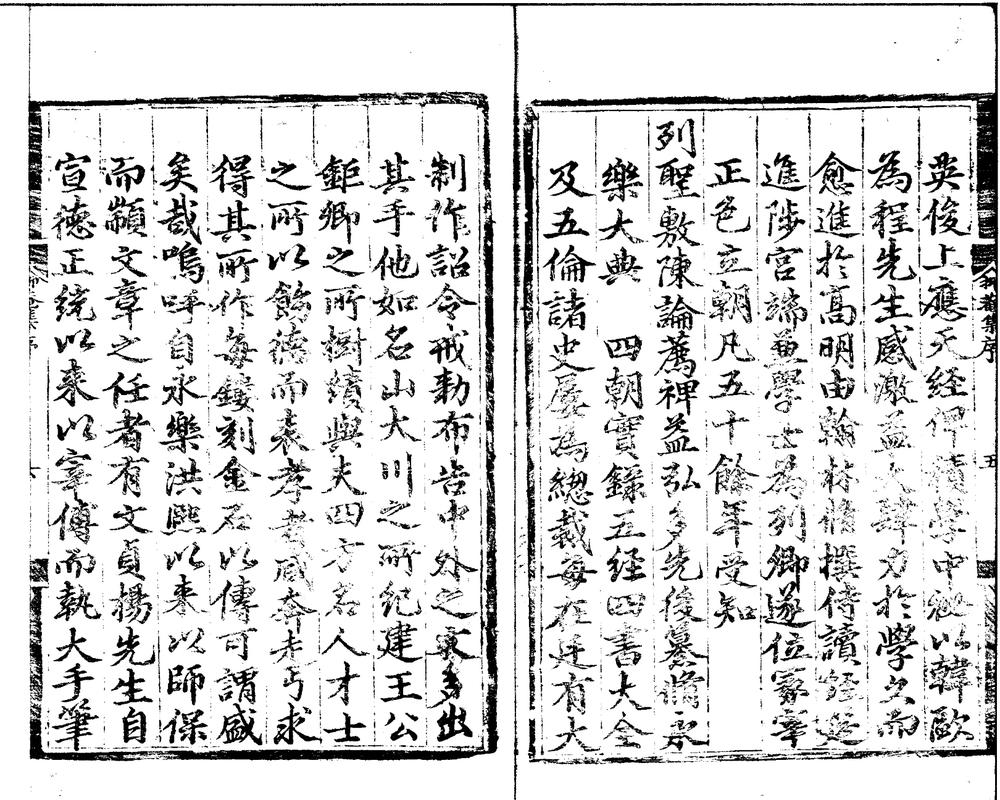 英俊上應天經俾積學中秘以韓歐
為程先生感激益大肆力於學久而
愈進於高明由翰林脩撰侍讀經筵
進陟宮端並學士為列卿遂位冢宰
正色立朝凡五十餘年受知
列聖敷陳論薦裨益弘多先後纂脩永
樂大典　四朝實錄五經四書大全
及五倫諸史屢為總裁每在廷有大
制作詔令戒勅布告中外之文多出
其手他如名山大川之所紀建王公
鉅卿之所樹績與夫四方名人才士
之所以飭德而表孝者咸奔走丐求
得其所作每鋟刻金石以傳可謂盛
矣哉嗚呼自永樂洪熙以来以師保
而顓文章之任者有文貞楊先生自
宣德正統以来以宰傅而執大手筆
集序
五